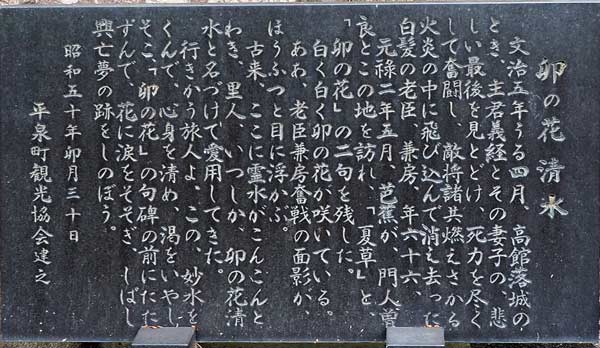 卯の花清水
文治五年うる四月、高館落城の
とき、主君義経とその妻子の、悲
しい最後を見とどけ、死力を尽く
して奮闘し、敵将諸共燃えさかる
火炎の中に飛び込んで消え去った
白髪の老臣、兼房、年六十六、
元禄二年五月、芭蕉が、門人曽
良とこの地を訪れ、「夏草」と、
「卯の花」の二句を残した。
白く白く卯の花が咲いている。
ああ、老臣兼房奮戦の面影が、
ほうふつと目に浮かぶ。
古来、ここに霊水がこんこんと
わき、里人、いつしか、卯の花清
水と名づけて愛用してきた。
行きかう旅人よ、この、妙水を
くんで、心身を清め、渇をいやし
そこ「卯の花」の句碑の前にたた
ずんで、花に涙をそそぎ、しばし
興亡夢の跡をしのぼう。
昭和五十年卯月三十日
平泉町観光協会建之